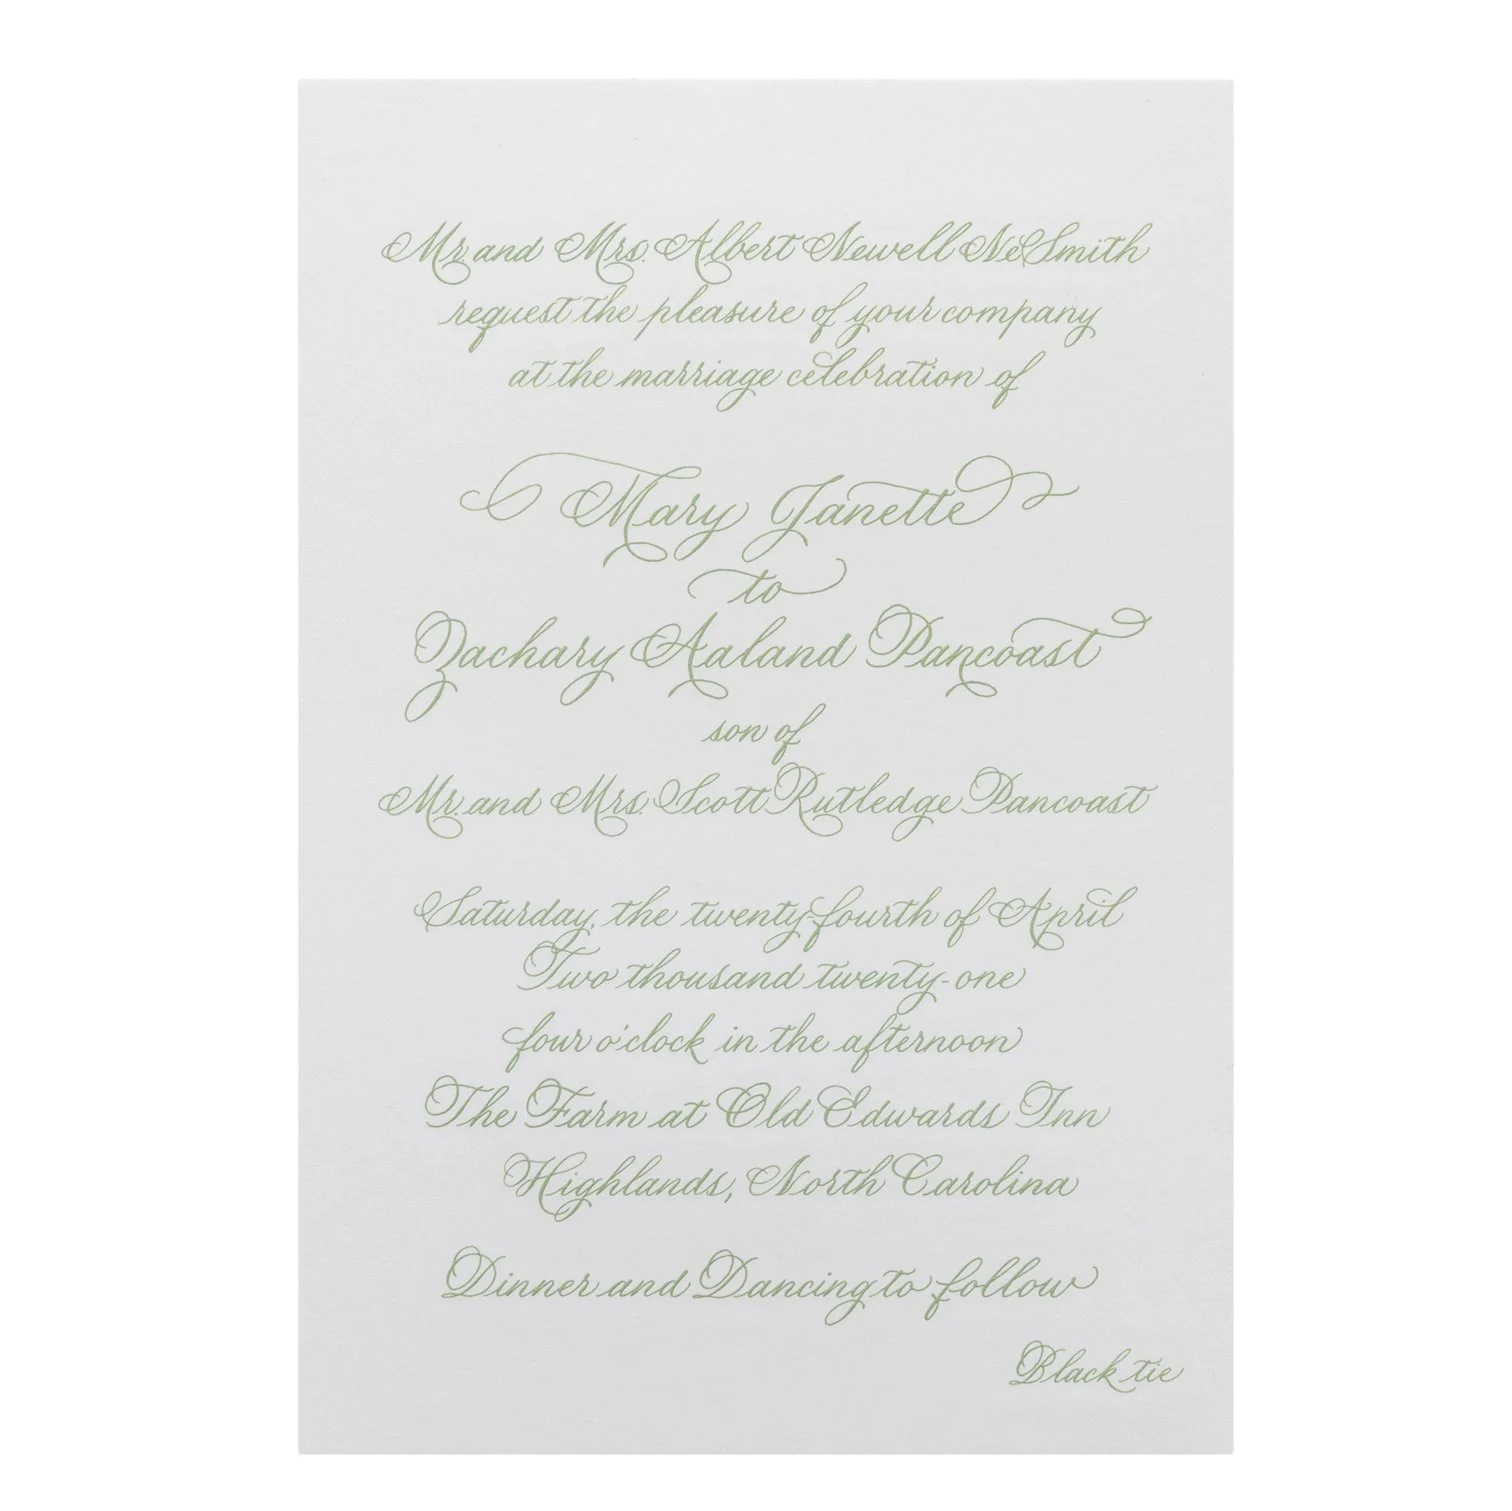 Mr. and Mrs. Albert Newell NeSmith
request the pleasure of your company
at the marriage celebration of
Mary Janette
to
Zachary Aaland Pancoast
son of
Mr. and Mrs. Scott Rutledge Pancoast
Saturday, the twenty-fourth of April
Two thousand twenty-one
four o'clock in the afternoon
The Farm at Old Edwards Inn
Highlands, North Carolina
Dinner and Dancing to follow
Black tie